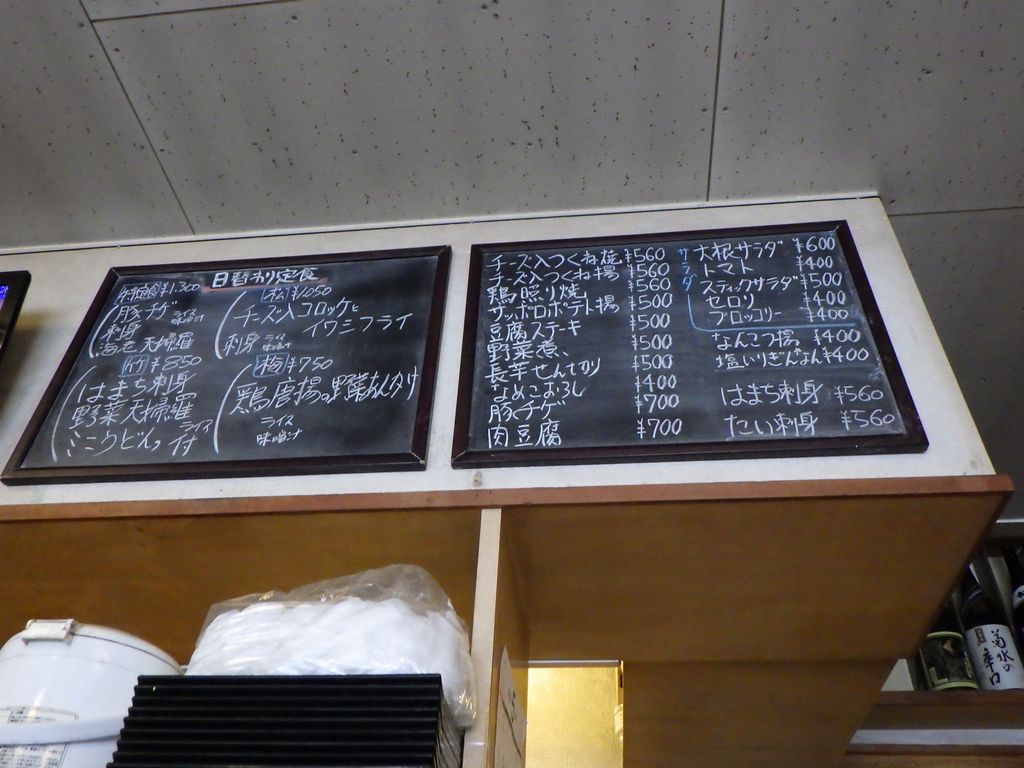 日替り定食
特定食 ¥1,300
豚チゲ
刺身
ライス
味噌汁
海老天婦羅
松 ¥1050
チーズ入コロッケと
イワシフライ
刺身
ライス
味噌汁
竹 ¥850
はまち刺身
野菜天婦羅
ミニうどん
ライス
付
梅 ¥750
鶏唐揚の野菜あんかけ
ライス
味噌汁
チーズ入つくね焼 ¥560
チーズ入つくね揚 ¥560
鶏照り焼 ¥560
サッポロポテト揚 ¥500
豆腐ステーキ ¥500
野菜煮 ¥500
長芋せん切り ¥500
なめこおろし ¥400
豚チゲ ¥700
肉豆腐 ¥700
サラダ
大根サラダ ¥600
トマト ¥400
スティックサラダ ¥500
セロリ ¥400
ブロッコリー ¥400
なんこつ揚 ¥400
塩いりぎんなん ¥400
はまち刺身 ¥560
たい刺身 ¥560
菊水の
辛口